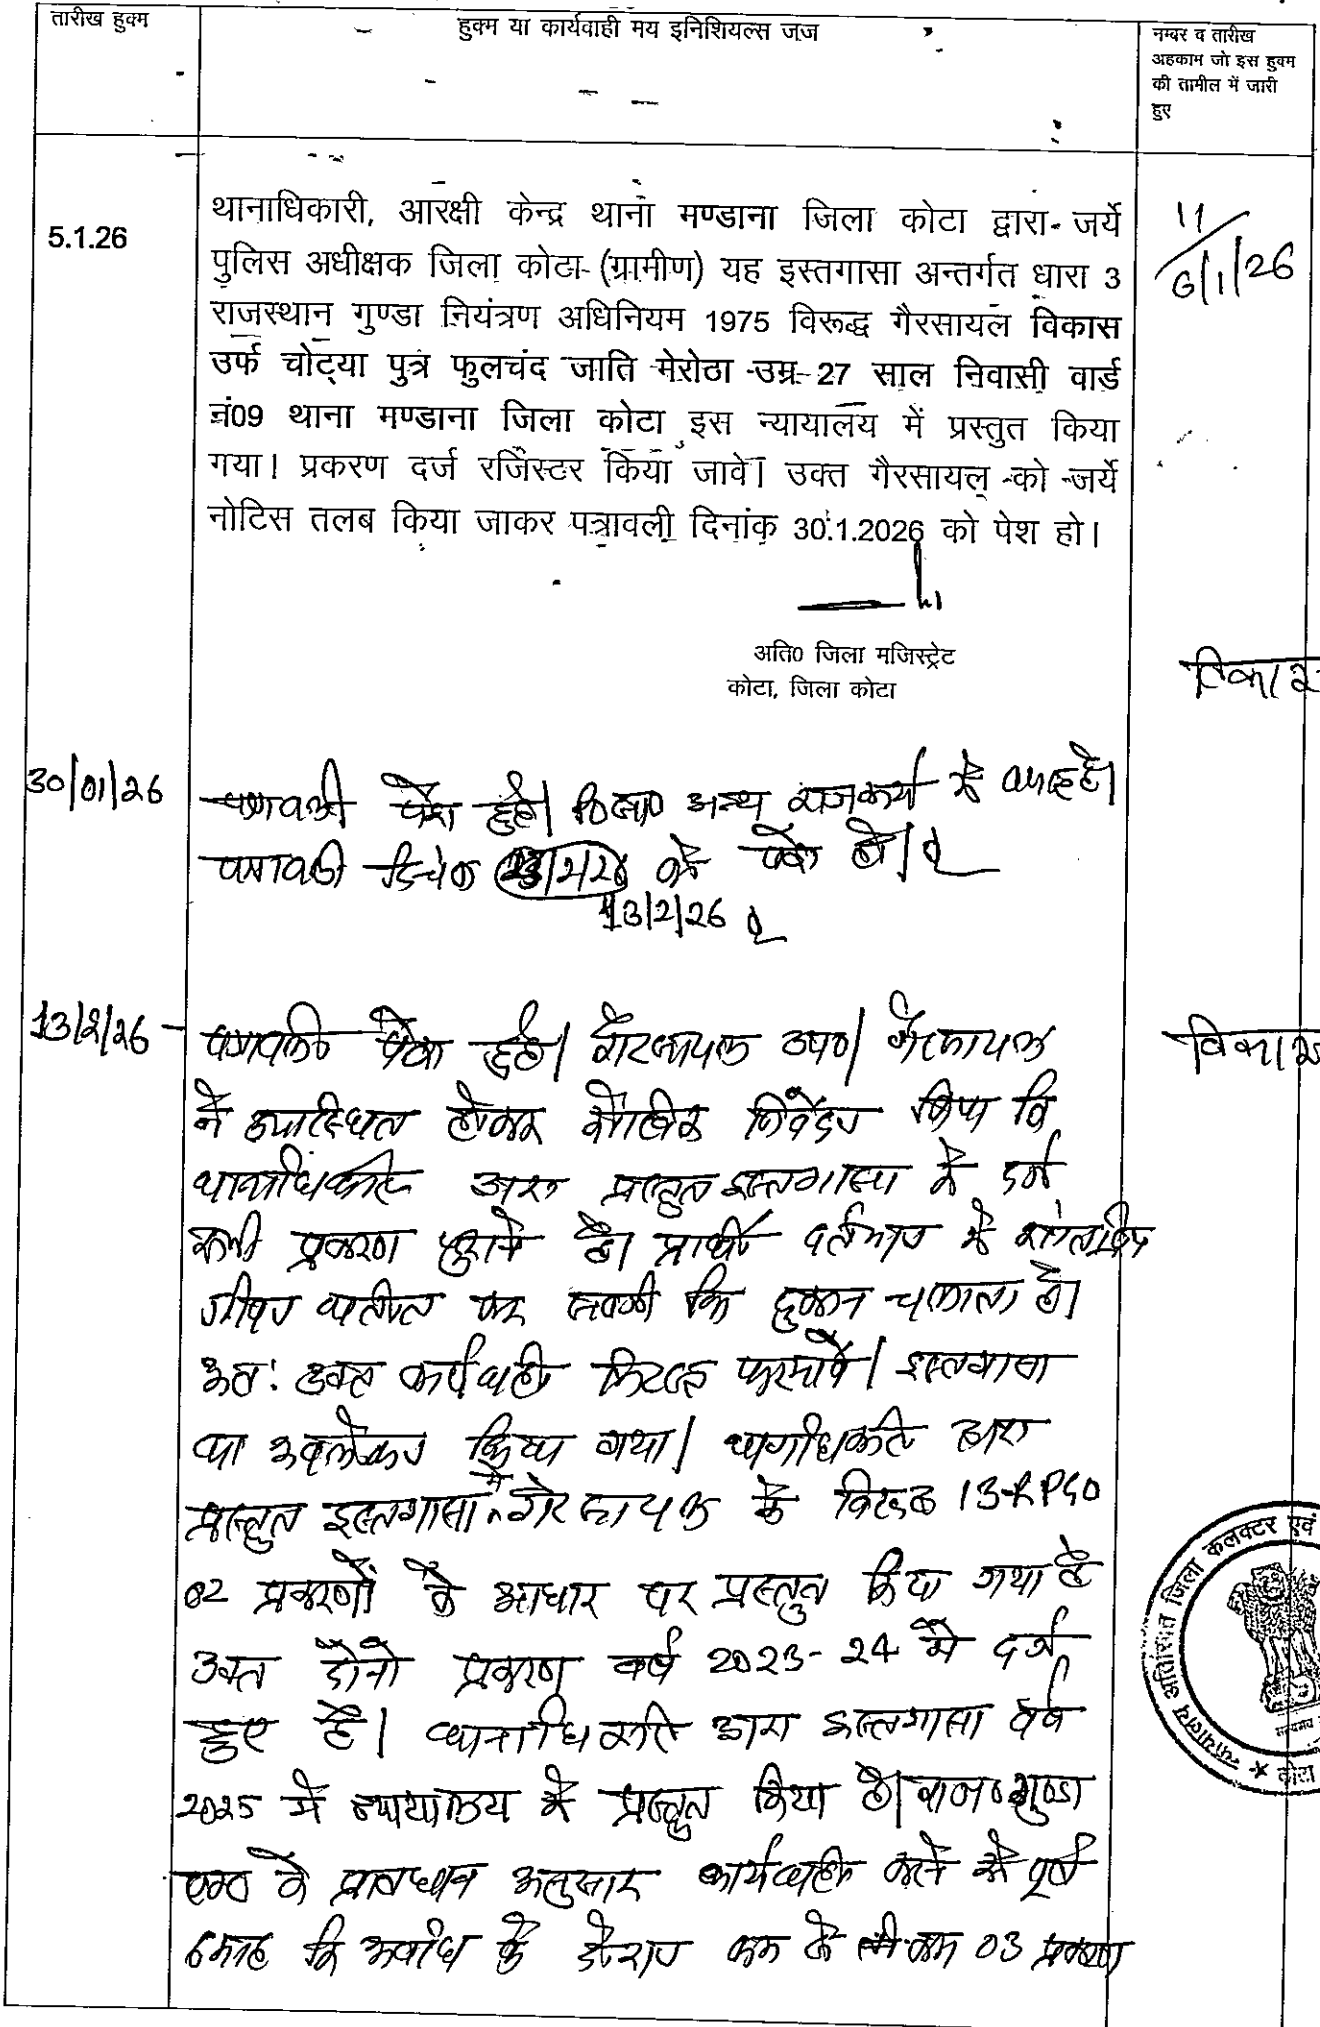 तारीख हुक्म
हुक्म या कार्यवाही मय इनिशियल्स जज
नम्बर व तारीख
अहकाम जो इस हुक्म
की तामील में जारी
हुए
5.1.26
थानाधिकारी, आरक्षी केन्द्र थाना मण्डाना जिला कोटा द्वारा जर्ये
पुलिस अधीक्षक जिला कोटा (ग्रामीण) यह इस्तगासा अन्तर्गत धारा 3
राजस्थान गुण्डा नियंत्रण अधिनियम 1975 विरूद्ध गैरसायल विकास
उर्फ चोट्या पुत्र फुलचंद जाति मेरोठा उम्र 27 साल निवासी वार्ड
नं09 थाना मण्डाना जिला कोटा इस न्यायालय में प्रस्तुत किया
गया। प्रकरण दर्ज रजिस्टर किया जावे। उक्त गैरसायल को जर्ये
नोटिस तलब किया जाकर पत्रावली दिनांक 30.1.2026 को पेश हो।
11
6/1/26
अति0 जिला मजिस्ट्रेट
कोटा, जिला कोटा
विकास
30/01/26
पत्रावली पेश हुई। अन्य राजकार्य में व्यस्त है।
पत्रावली दिनांक को पेश हो।
13/2/26
13/2/26
पत्रावली पेश हुई। गैरसायल उप0। गैरसायल
विकास
ने उपस्थित होकर मौखिक निवेदन किया कि
थानाधिकारी द्वारा प्रस्तुत इस्तगासा में दर्ज
सभी प्रकरण पुराने है। प्रार्थी वर्तमान में शांतिप्रिय
जीवन व्यतीत कर सब्जी कि दुकान चलाता है।
अतः उक्त कार्यवाही निरस्त फरमावें। इस्तगासा
का अवलोकन किया गया। थानाधिकारी द्वारा
प्रस्तुत इस्तगासा में गैरसायल के विरूद्ध 13 RPGO
02 प्रकरणों के आधार पर प्रस्तुत किया गया है
उक्त दोनो प्रकरण वर्ष 2023-24 में दर्ज
हुए है। थानाधिकारी द्वारा इस्तगासा वर्ष
2025 में न्यायालय में प्रस्तुत किया है। राज0 गुण्डा
एक्ट के प्रावधान अनुसार कार्यवाही करने के पूर्व
6 माह कि अवधि के दौरान कम से कम 03 प्रकरण
न्यायालय अतिरिक्त जिला कलक्टर एवं
कोटा